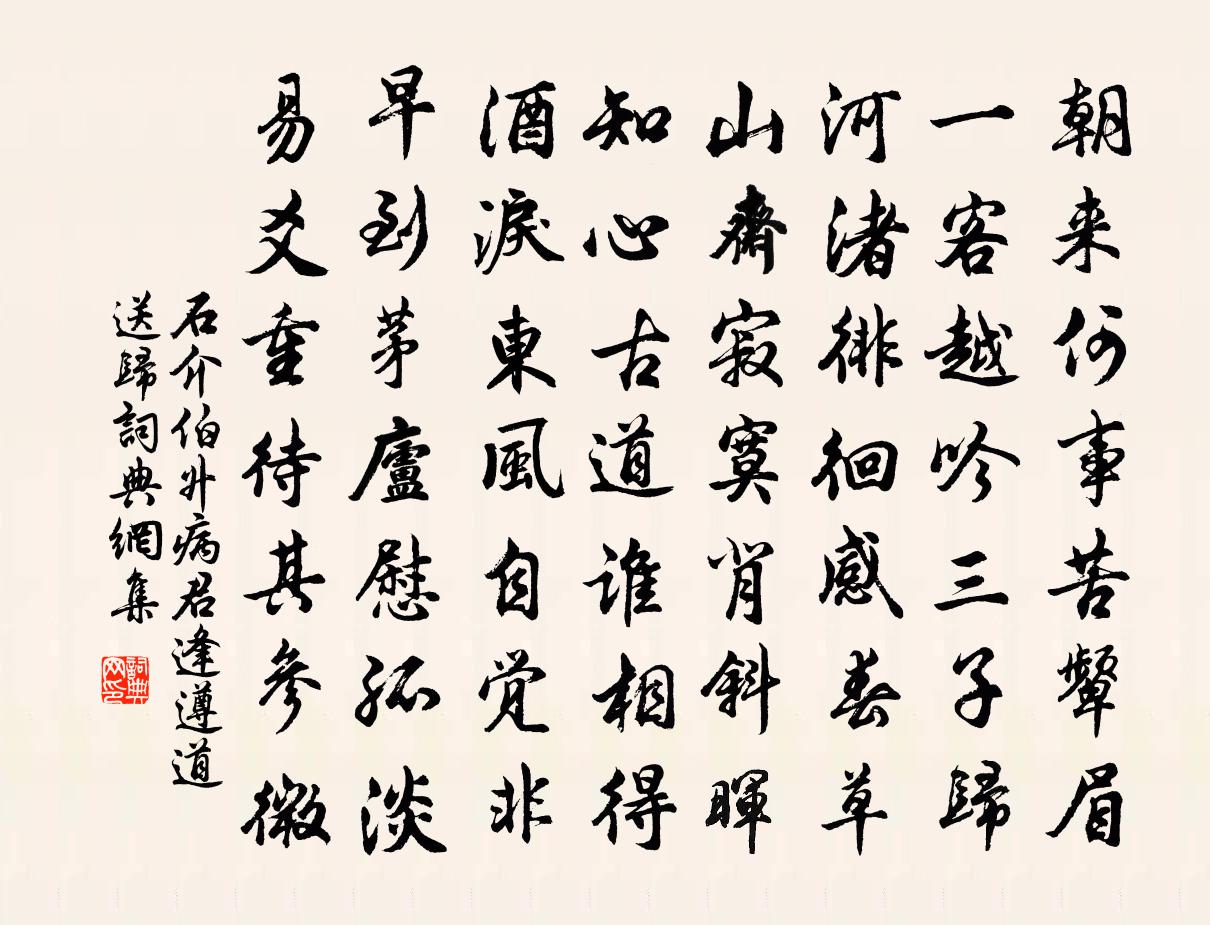 朝来何事苦颦眉
一客越吟三子歸
河渚徘徊感春草
山齋寂寞背斜暉
知心古道誰相得
酒淚東風自觉非
早到茅廬慰孤淡
易爻重待其參微
石介伯升病君逢遵道
送歸詞典網集
詞典网印